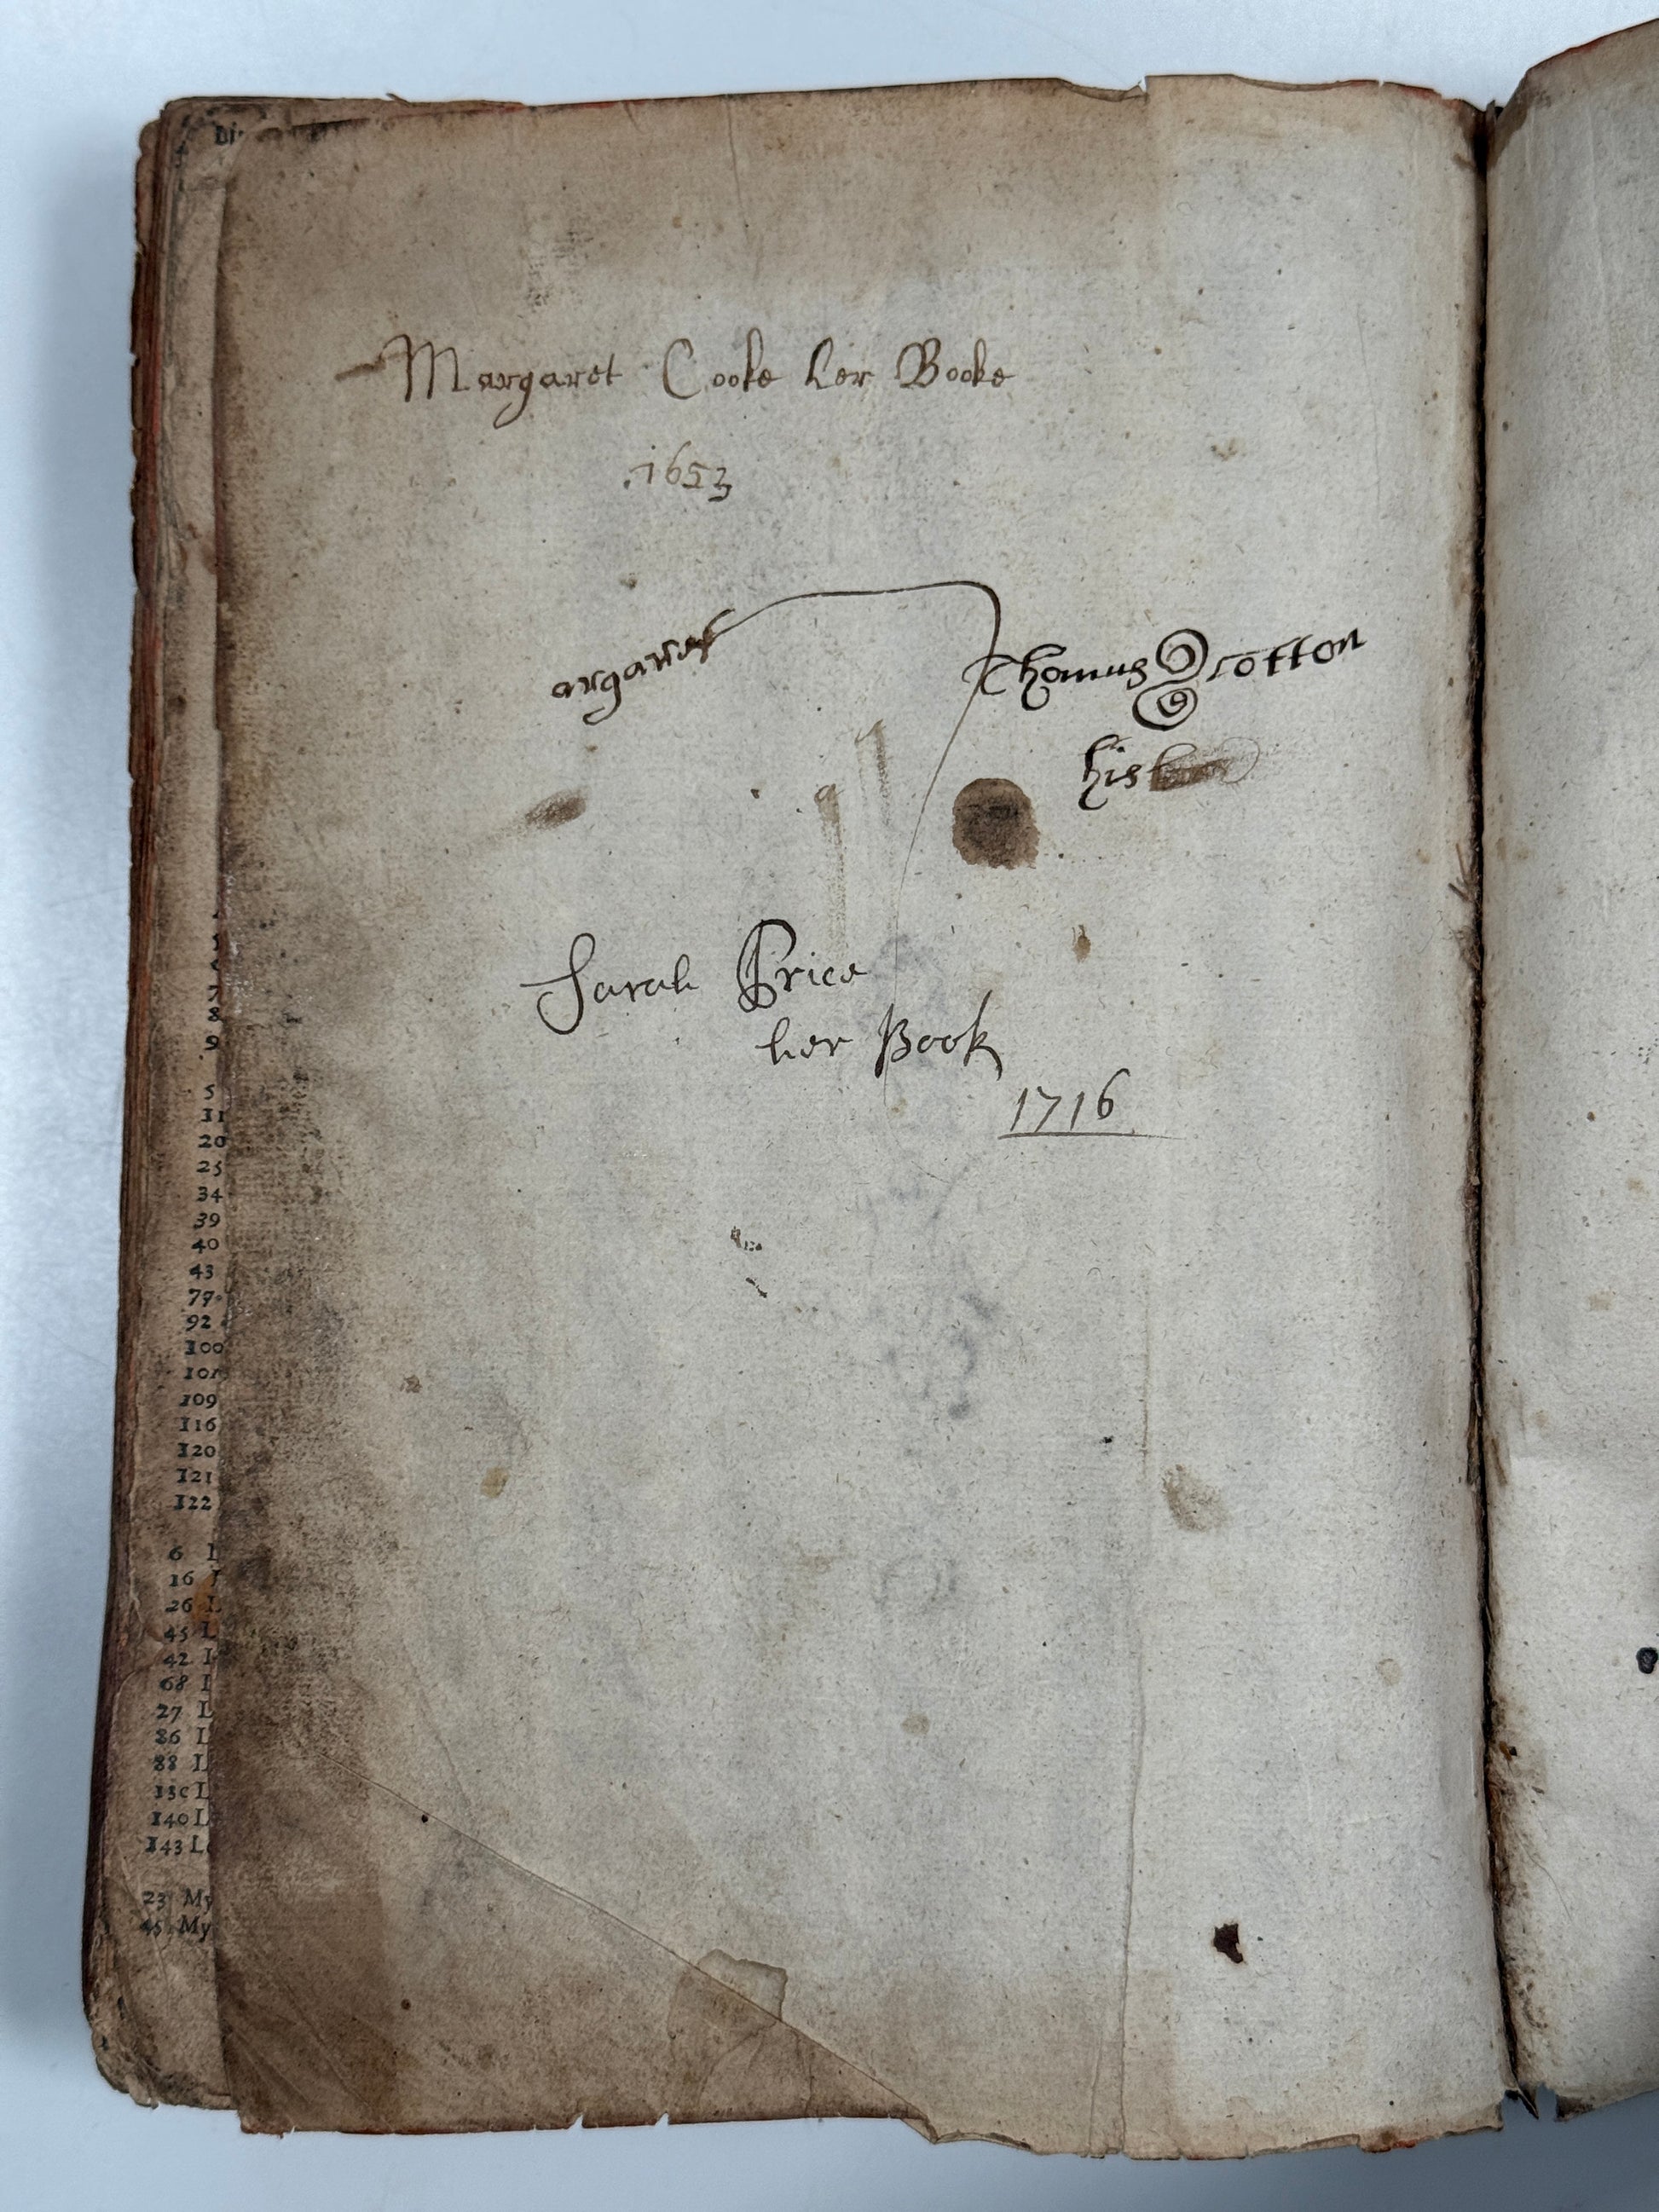 Margaret Cooke her Booke
1653
argaret
Thomas Cotton
his
Sarah Price
her Book
1716
7
8
9
5
31
20
25
34
39
40
43
79
92
100
101
109
116
120
121
122
6
16
26 L
45 L
42
68
27 L
86 L
88 L
130 L
140 L
143 L
23 My
45 My